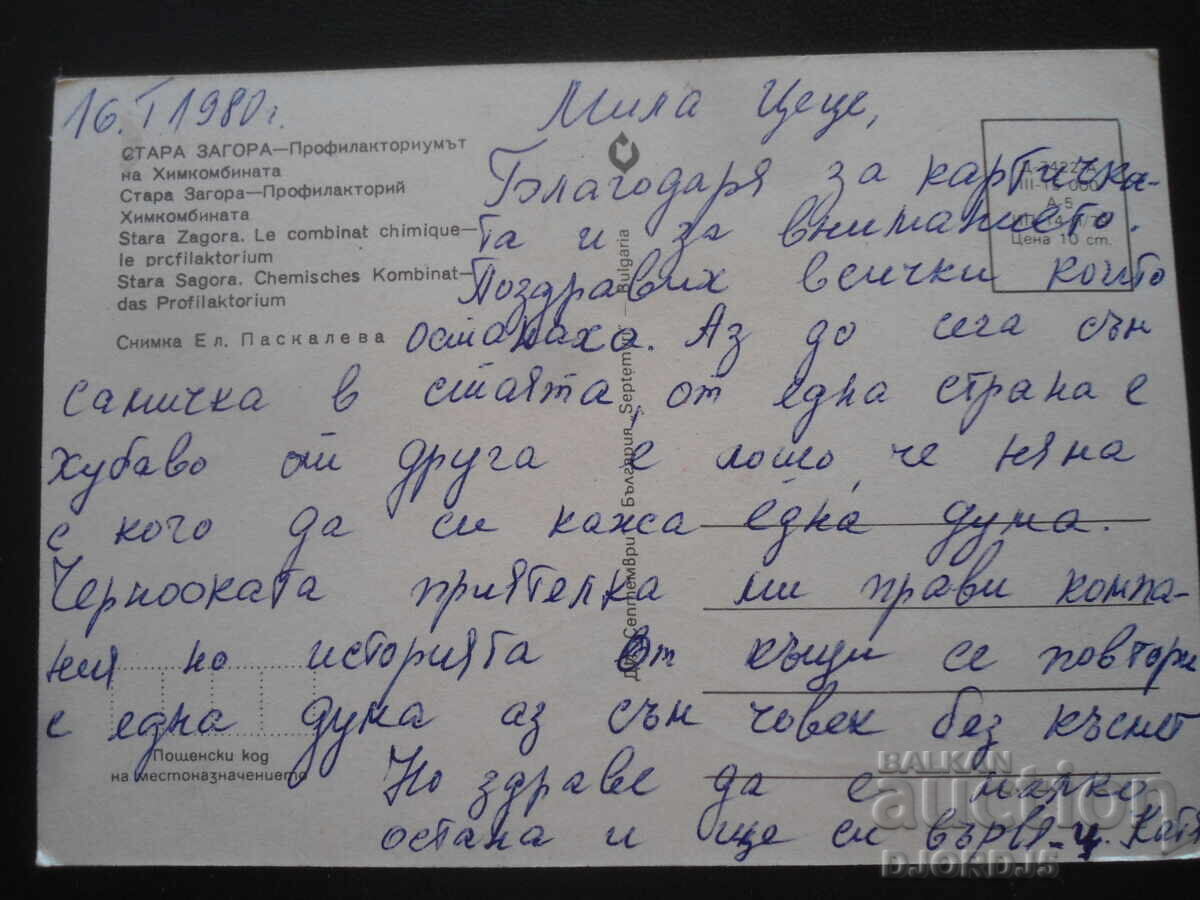 16.I.1980г.
Мила Цеце,
СТАРА ЗАГОРА—Профилакториумът
на Химкомбината
Стара Загора—Профилакторий
Химкомбината
Stara Zagora. Le combinat chimique—
le prcfilaktorium
Stara Sagora. Chemisches Kombinat—
das Profilaktorium
Снимка Ел. Паскалева
Благодаря за картичка-
та и за вниманието.
Поздравих всички които
останаха. Аз до сега сън
самичка в стаята, от една страна е
хубаво от друга е лошо че няна
с кого да си кажа една дума.
Чернооката приятелка ми прави компа-
ния но историята от къщи се повтори
с една дума аз сън човек без късмет
Но здраве да е малко
остана и ще си вървя. ц. Катя
III-1
А 5
Цена 10 ст.
Септември България „Septemvri" — Bulgaria
Пощенски код
на местоназначението
BALKAN
auction
DJORDJ5